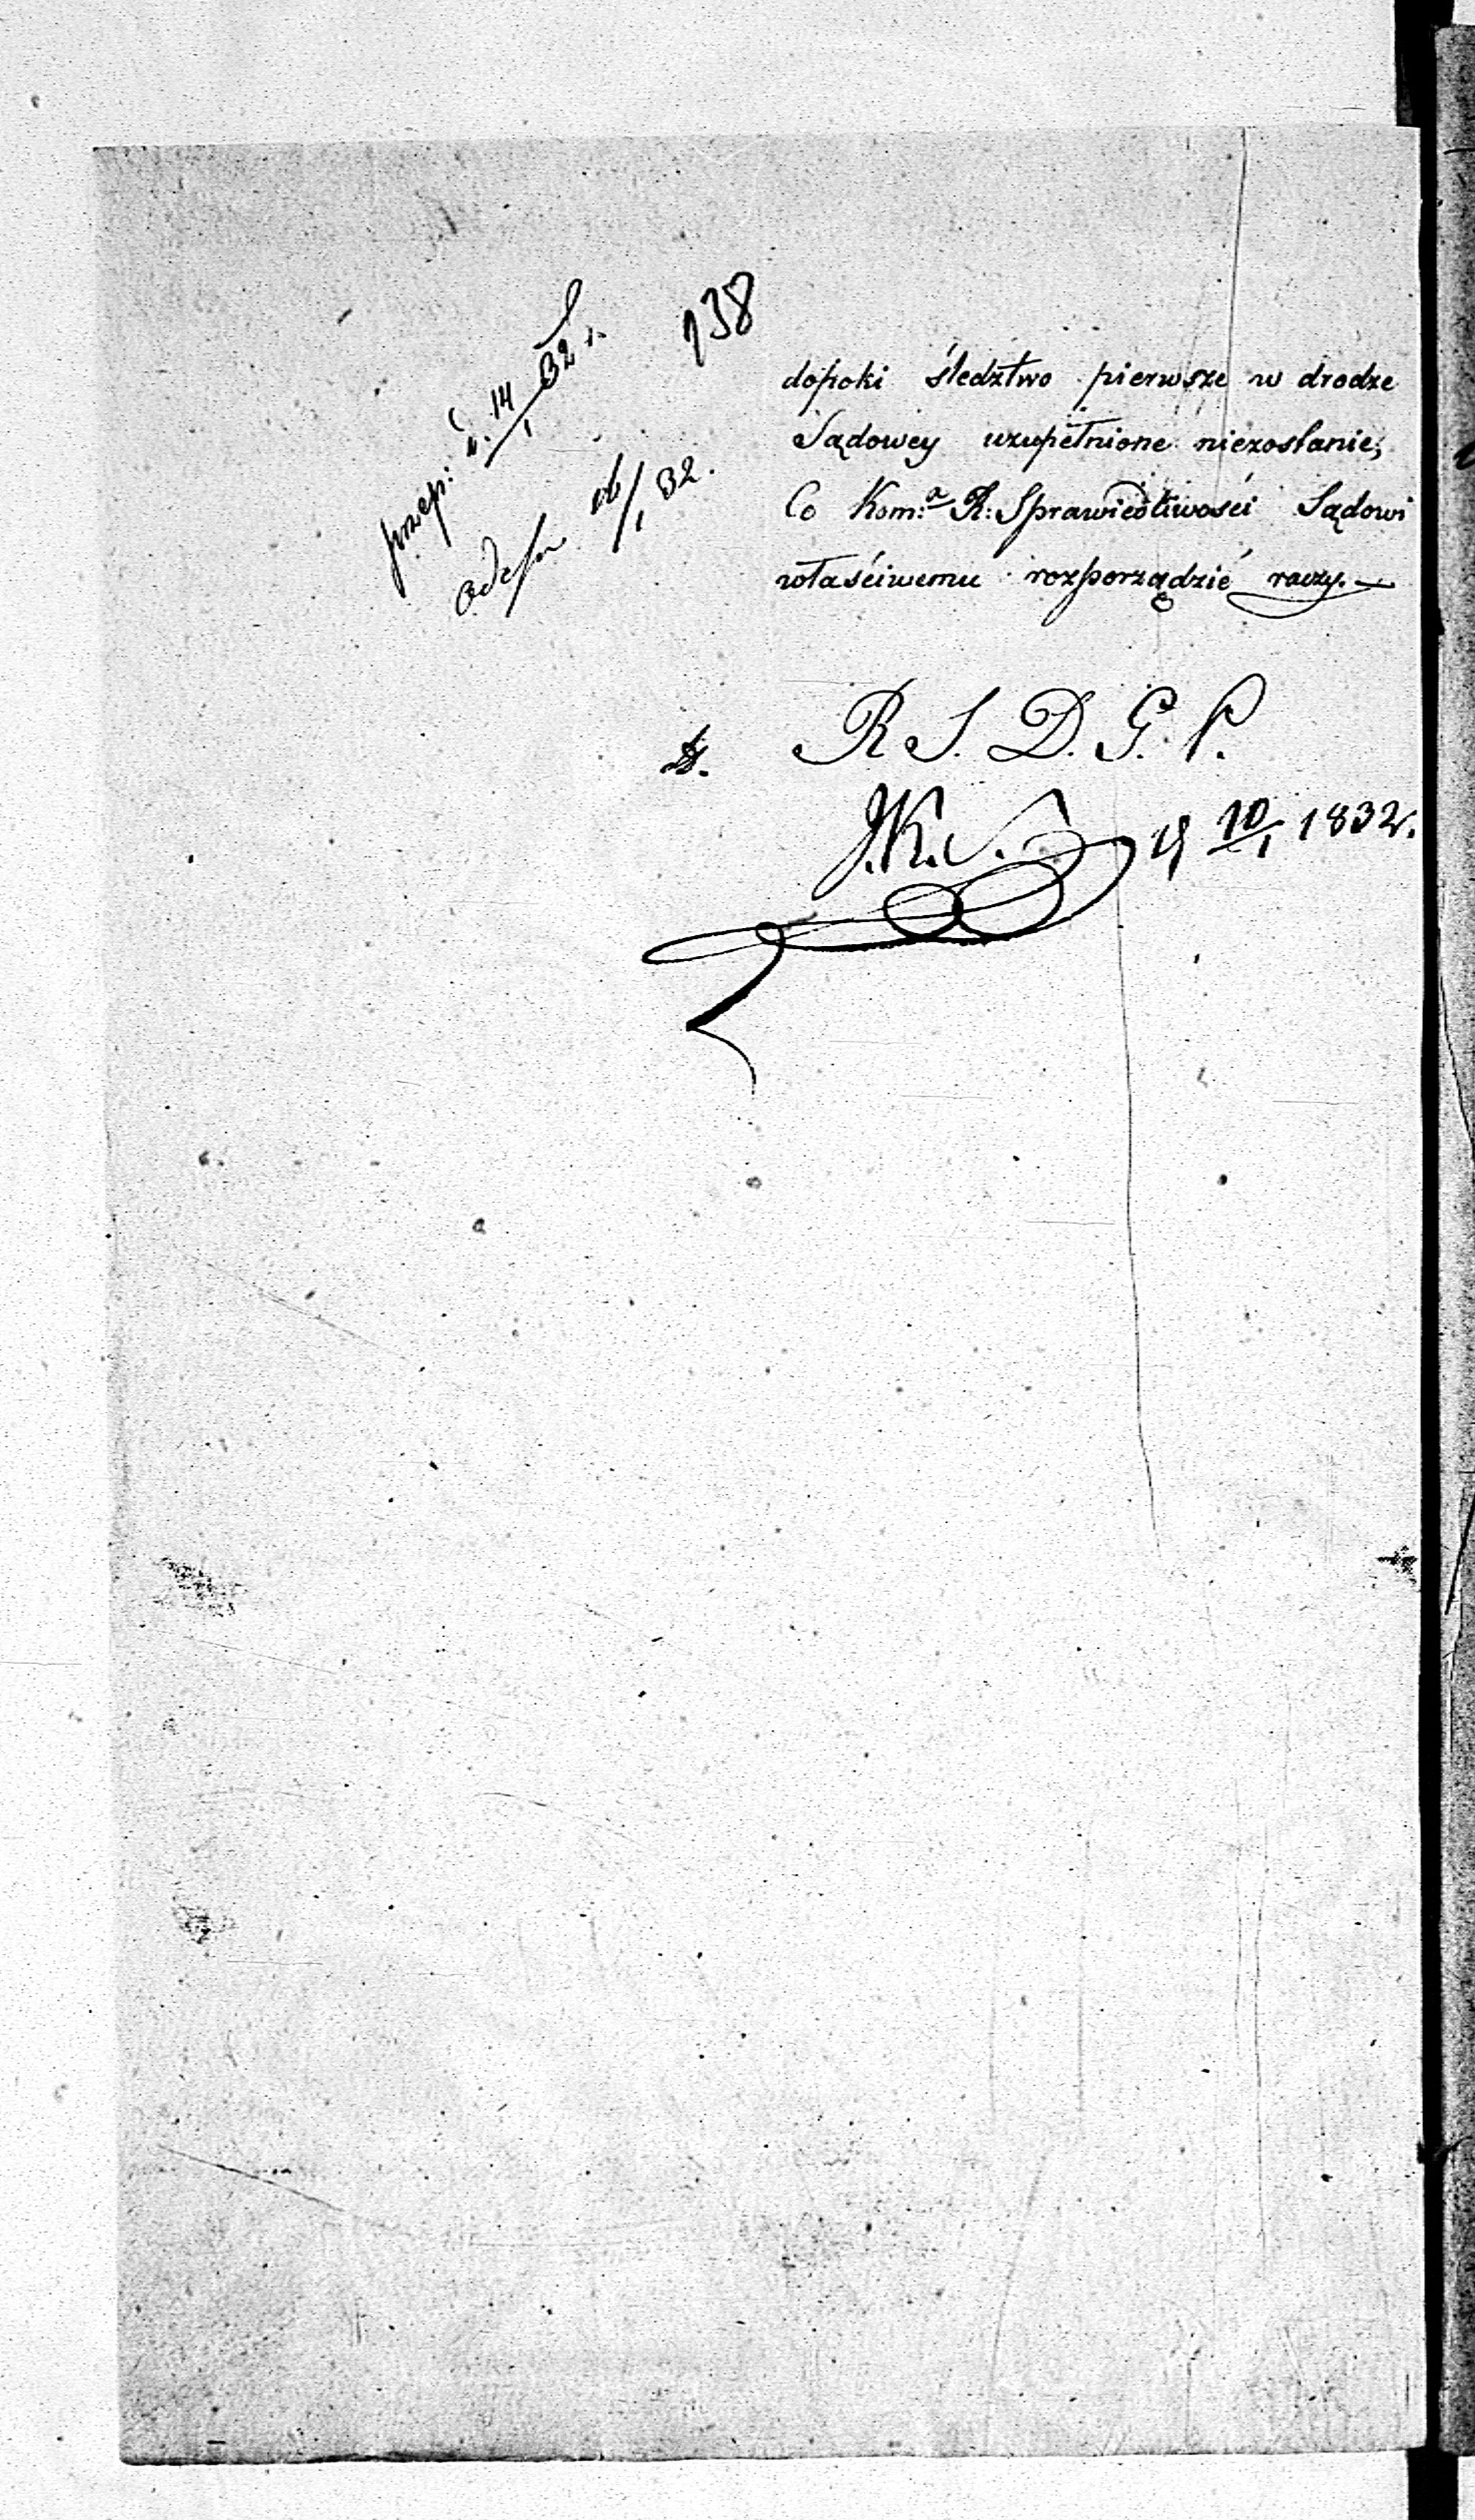 138
przep: d. 14/1 32 r.
odesłan 16/1 32.
dopoki śledztwo pierwsze w drodze
Sądowey uzupełnione niezostanie;
Co Kom:a R: Sprawiedliwości Sądowi
właściwemu rozporządzić raczy.—
R. S. D. G. P.
10/1 1832r.